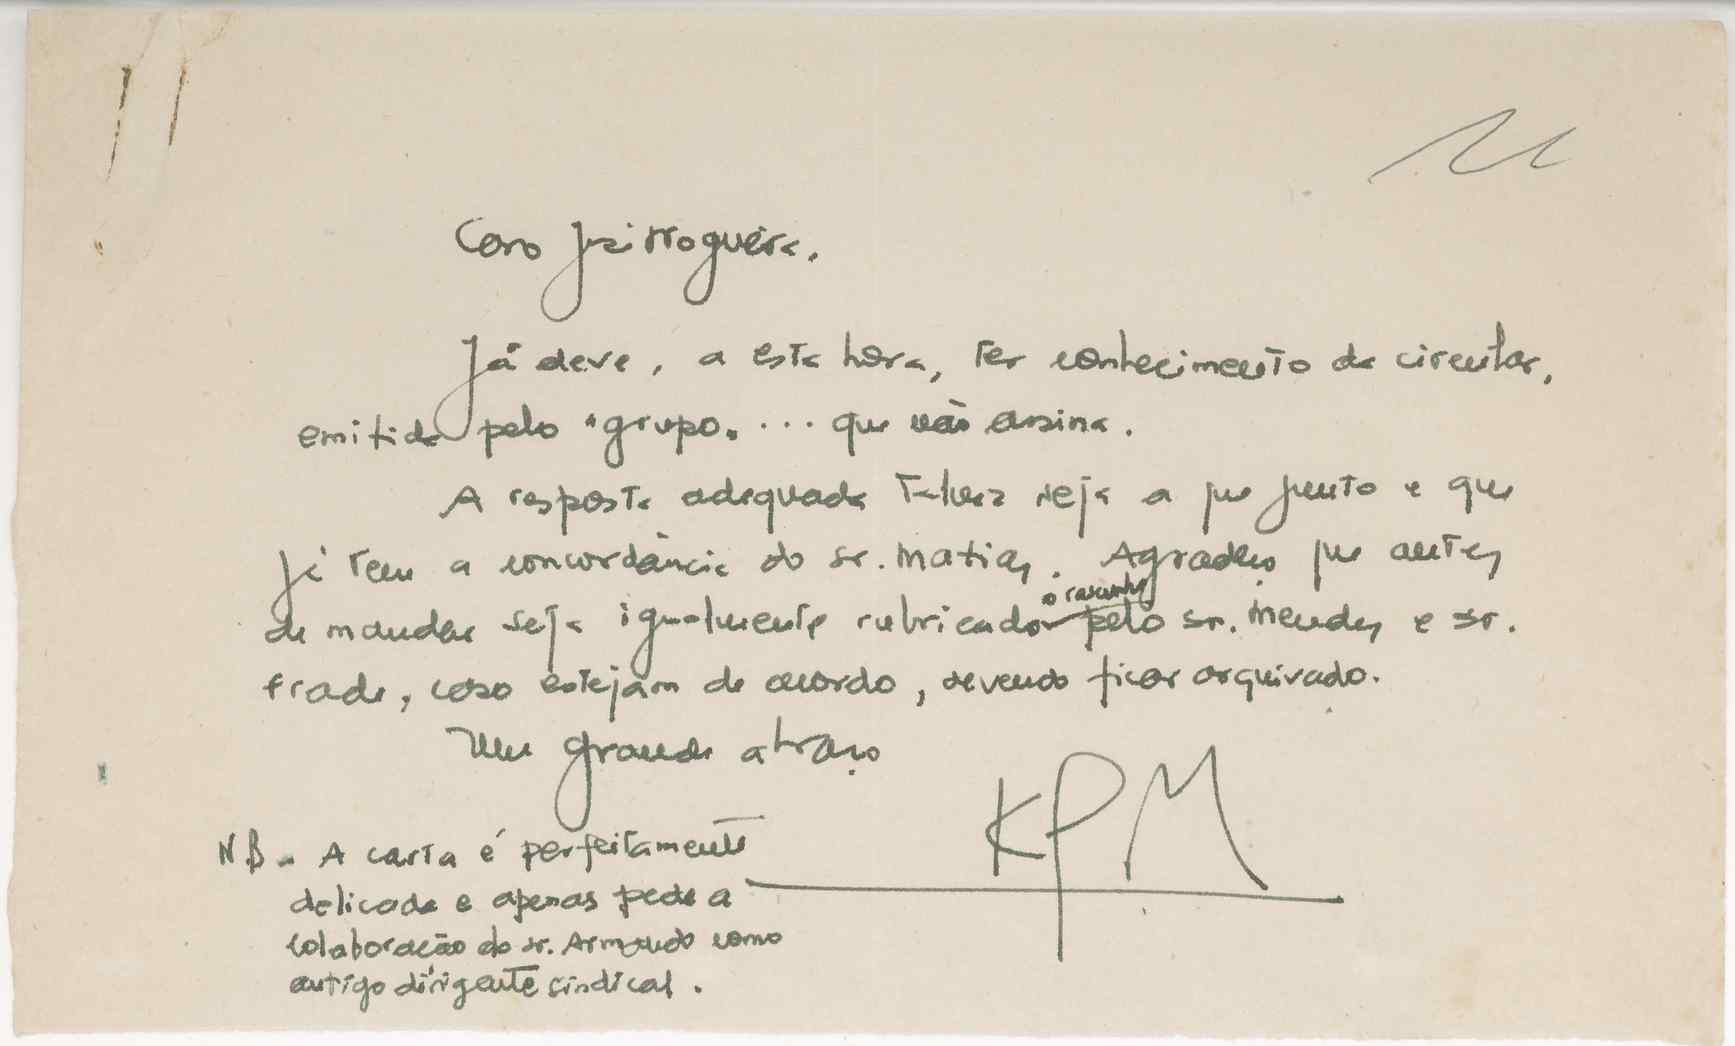 Caro Jaime Nogueira.
Já deve, a esta hora, ter conhecimento da circular,
emitida pelo "grupo" ... que não assina.
A resposta adequada talvez seja a que junto e que
já tem a concordância do sr. Matias. Agradeço que antes
o rascunho
de mandar seja igualmente rubricado pelo sr. Mendes e sr.
Frade, caso estejam de acordo, devendo ficar arquivado.
Um grande abraço
KPM
NB - A carta é perfeitamente
delicada e apenas pede a
colaboração do sr. Armando como
antigo dirigente sindical.